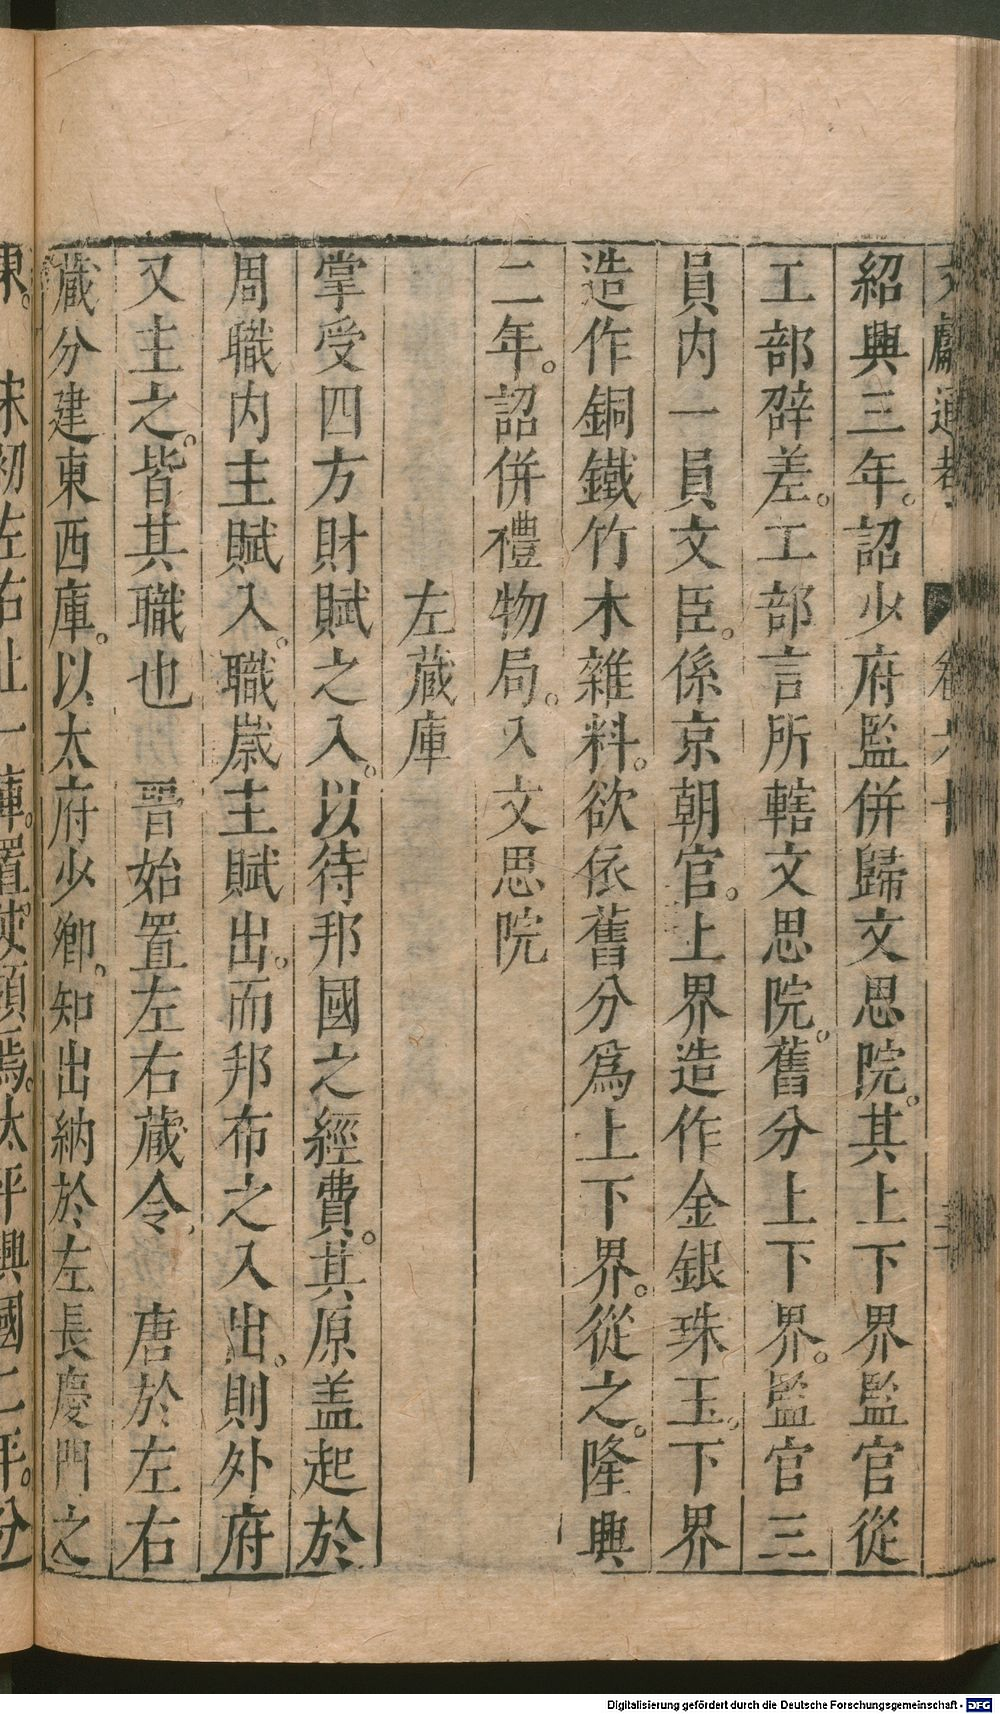 文獻通考 卷六十
紹興三年。詔少府監併歸文思院。其上下界監官從
工部辟差。工部言所轄文思院。舊分上下界。監官三
員内一員文臣。係京朝官。上界造作金銀珠玉。下界
造作銅鐵竹木雜料。欲依舊分爲上下界。從之。隆興
二年。詔併禮物局。入文思院
左藏庫
掌受四方財賦之入。以待邦國之經費。其原盖起於
周職内主賦入。職嵗主賦出。而邦布之入出。則外府
又主之。皆其職也 晋始置左右藏令 唐於左右
藏分建東西庫。以太府少卿。知出納於左長慶門之
東。 宋初左右止一庫。置使領焉。太平興國二年。分
Digitalisierung gefördert durch die Deutsche Forschungsgemeinschaft - DFG